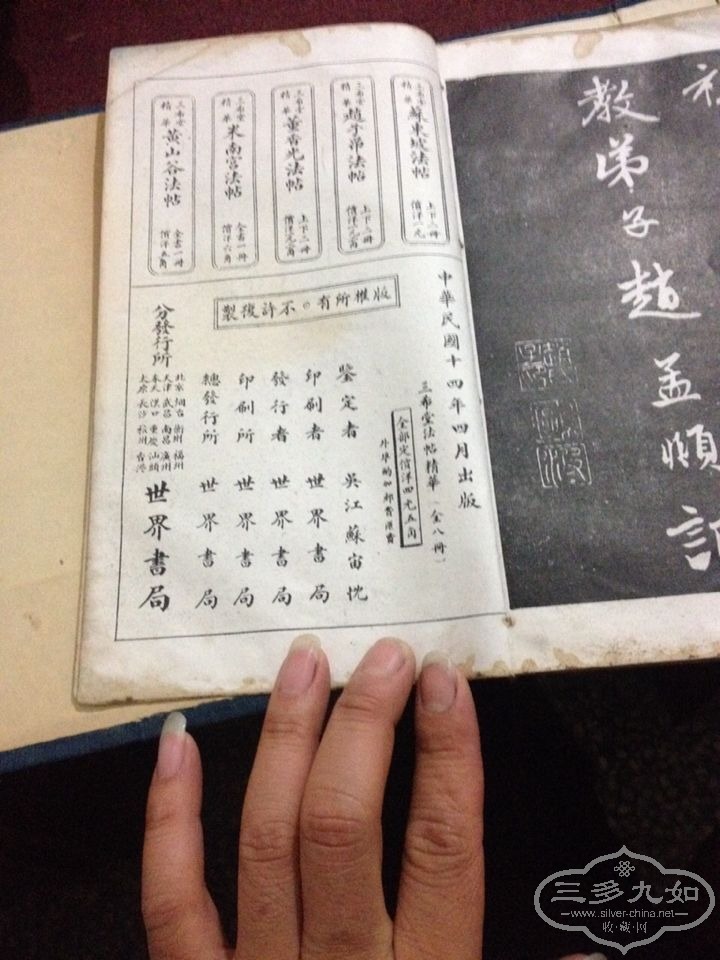 教弟子趙孟頫
三希堂
精華
蘇東坡法帖
上下二冊
價洋一元
三希堂
精華
趙子昂法帖
上下二冊
三希堂
精華
董香光法帖
上下二冊
三希堂
精華
米南宮法帖
全書一冊
價洋六角
三希堂
精華
黃山谷法帖
全書一冊
價洋五角
版權所有不許復製
中華民國十四年四月出版
三希堂法帖精華(全八冊)
全部定價洋四元五角
外埠酌加郵費滙費
鑒定者 吳江蘇宙忱
印刷者 世界書局
發行者 世界書局
印刷所 世界書局
總發行所 世界書局
分發行所
北京 烟台 衡州 福州
天津 武昌 南昌 廣州
奉天 漢口 重慶 汕頭
太原 長沙 杭州
世界書局
三多九如
www.silver-china.net
收·藏·网